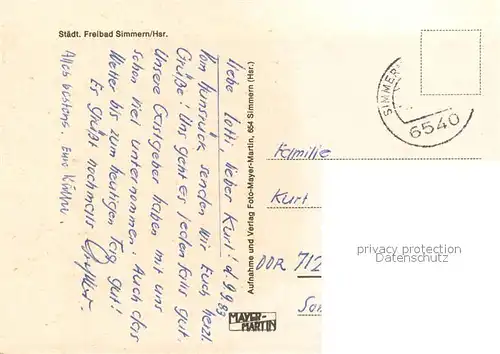 Städt. Freibad Simmern/Hsr.
Liebe Lotti, lieber Kurt! d. 9.9.83
Vom Hunsrück senden wir Euch herzl.
Grüße! Uns geht es jedenfalls gut.
Unsere Gastgeber haben mit uns
schon viel unternommen. Auch das
Wetter bis zum heutigen Tag gut!
Es grüßt nochmals
Alles bestens. Eure
Aufnahme und Verlag Foto-Mayer-Martin, 654 Simmern (Hsr.)
MAYER-
MARTIN
SIMMER
6540
Familie
Kurt
DDR 712
privacy protection
Datenschutz